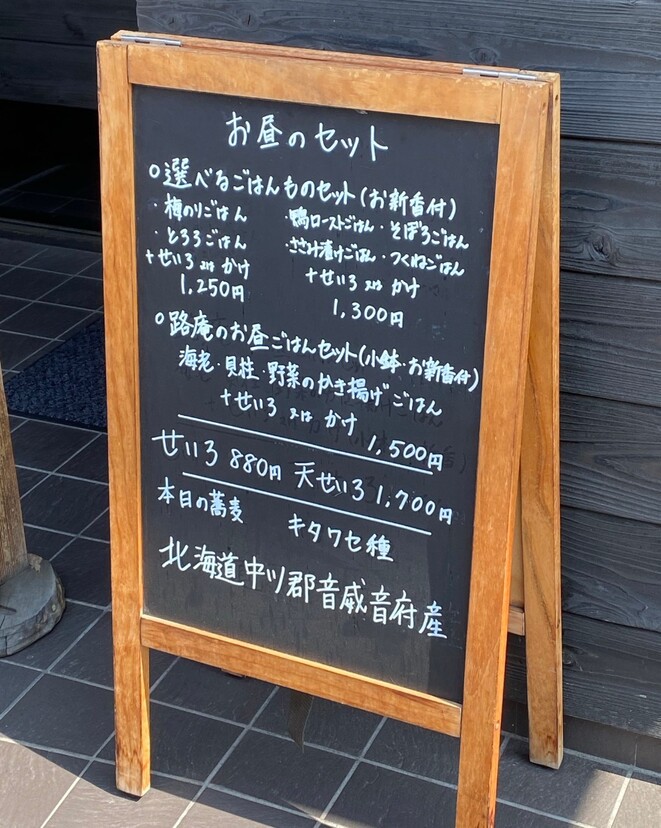 お昼のセット
○選べるごはんものセット(お新香付)
・梅のりごはん
・とろろごはん
+せいろ又はかけ
1,250円
鴨ローストごはん・そぼろごはん
ささみ漬けごはん・つくねごはん
+せいろ又はかけ
1,300円
○路庵のお昼ごはんセット(小鉢・お新香付)
海老・貝柱・野菜のかき揚げごはん
+せいろ又はかけ
1,500円
せいろ 880円 天せいろ 1,700円
本日の蕎麦 キタワセ種
北海道中川郡音威音府産